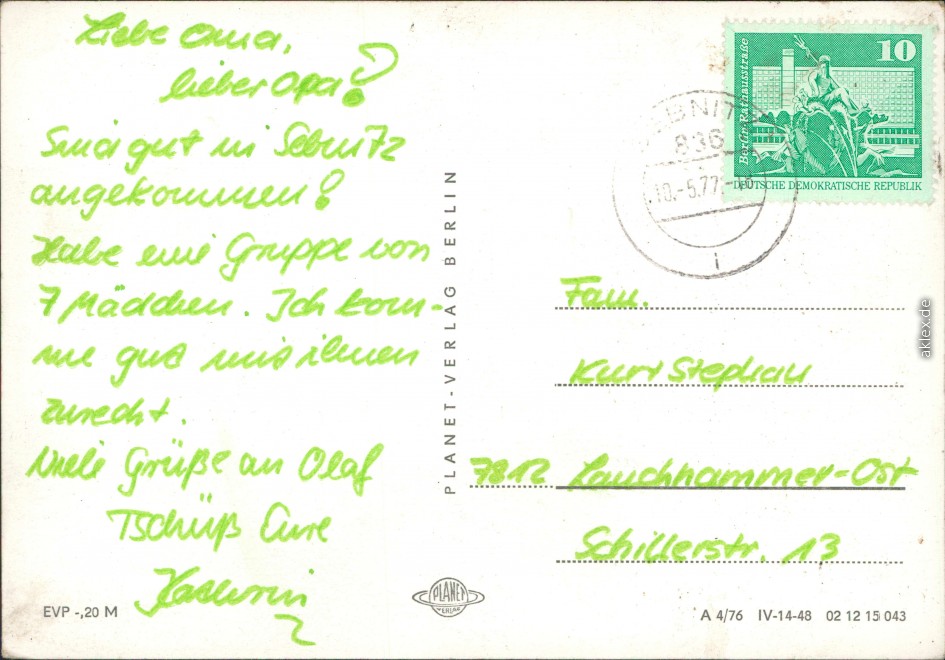 Liebe Oma,
lieber Opa!
Bin gut in Sebnitz
angekommen!
Habe eine Gruppe von
7 Mädchen. Ich kom-
me gut mit ihnen
zurecht.
Viele Grüße an Olaf
Tschüß Eure
EVP -,20 M
PLANET-VERLAG BERLIN
PLANET
VERLAG
Berlin-Rathausstraße
10
DEUTSCHE DEMOKRATISCHE REPUBLIK
BNITZ
836
10.-5.77.-
i
Fam.
Kurt Stephan
7812 Lauchhammer-Ost
Schillerstr. 13
A 4/76 IV-14-48 02 12 15 043
aklex.de